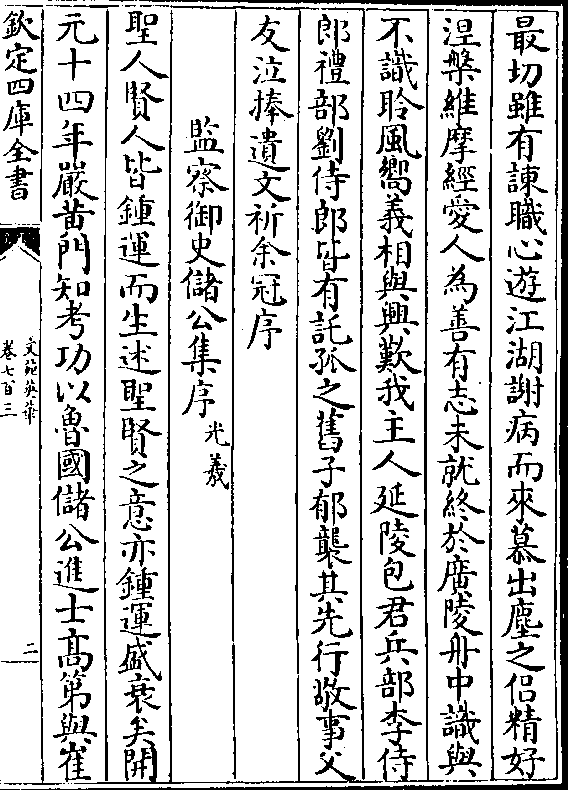 最切雖有諫職心遊江湖謝病而來慕出塵之侣精好
涅槃維摩經愛人為善有志未就終於廣陵舟中識與
不識聆風嚮義相與興歎我主人延陵包君兵部李侍
郎禮部劉侍郎皆有託孤之舊子郁襲其先行敬事父
友泣捧遺文祈余冠序
監察御史儲公集序光羲
聖人賢人皆鍾運而生述聖賢之意亦鍾運盛衰矣開
元十四年嚴黄門知考功以魯國儲公進士高第與崔
欽定四庫全書
文苑英華
卷七百三
二